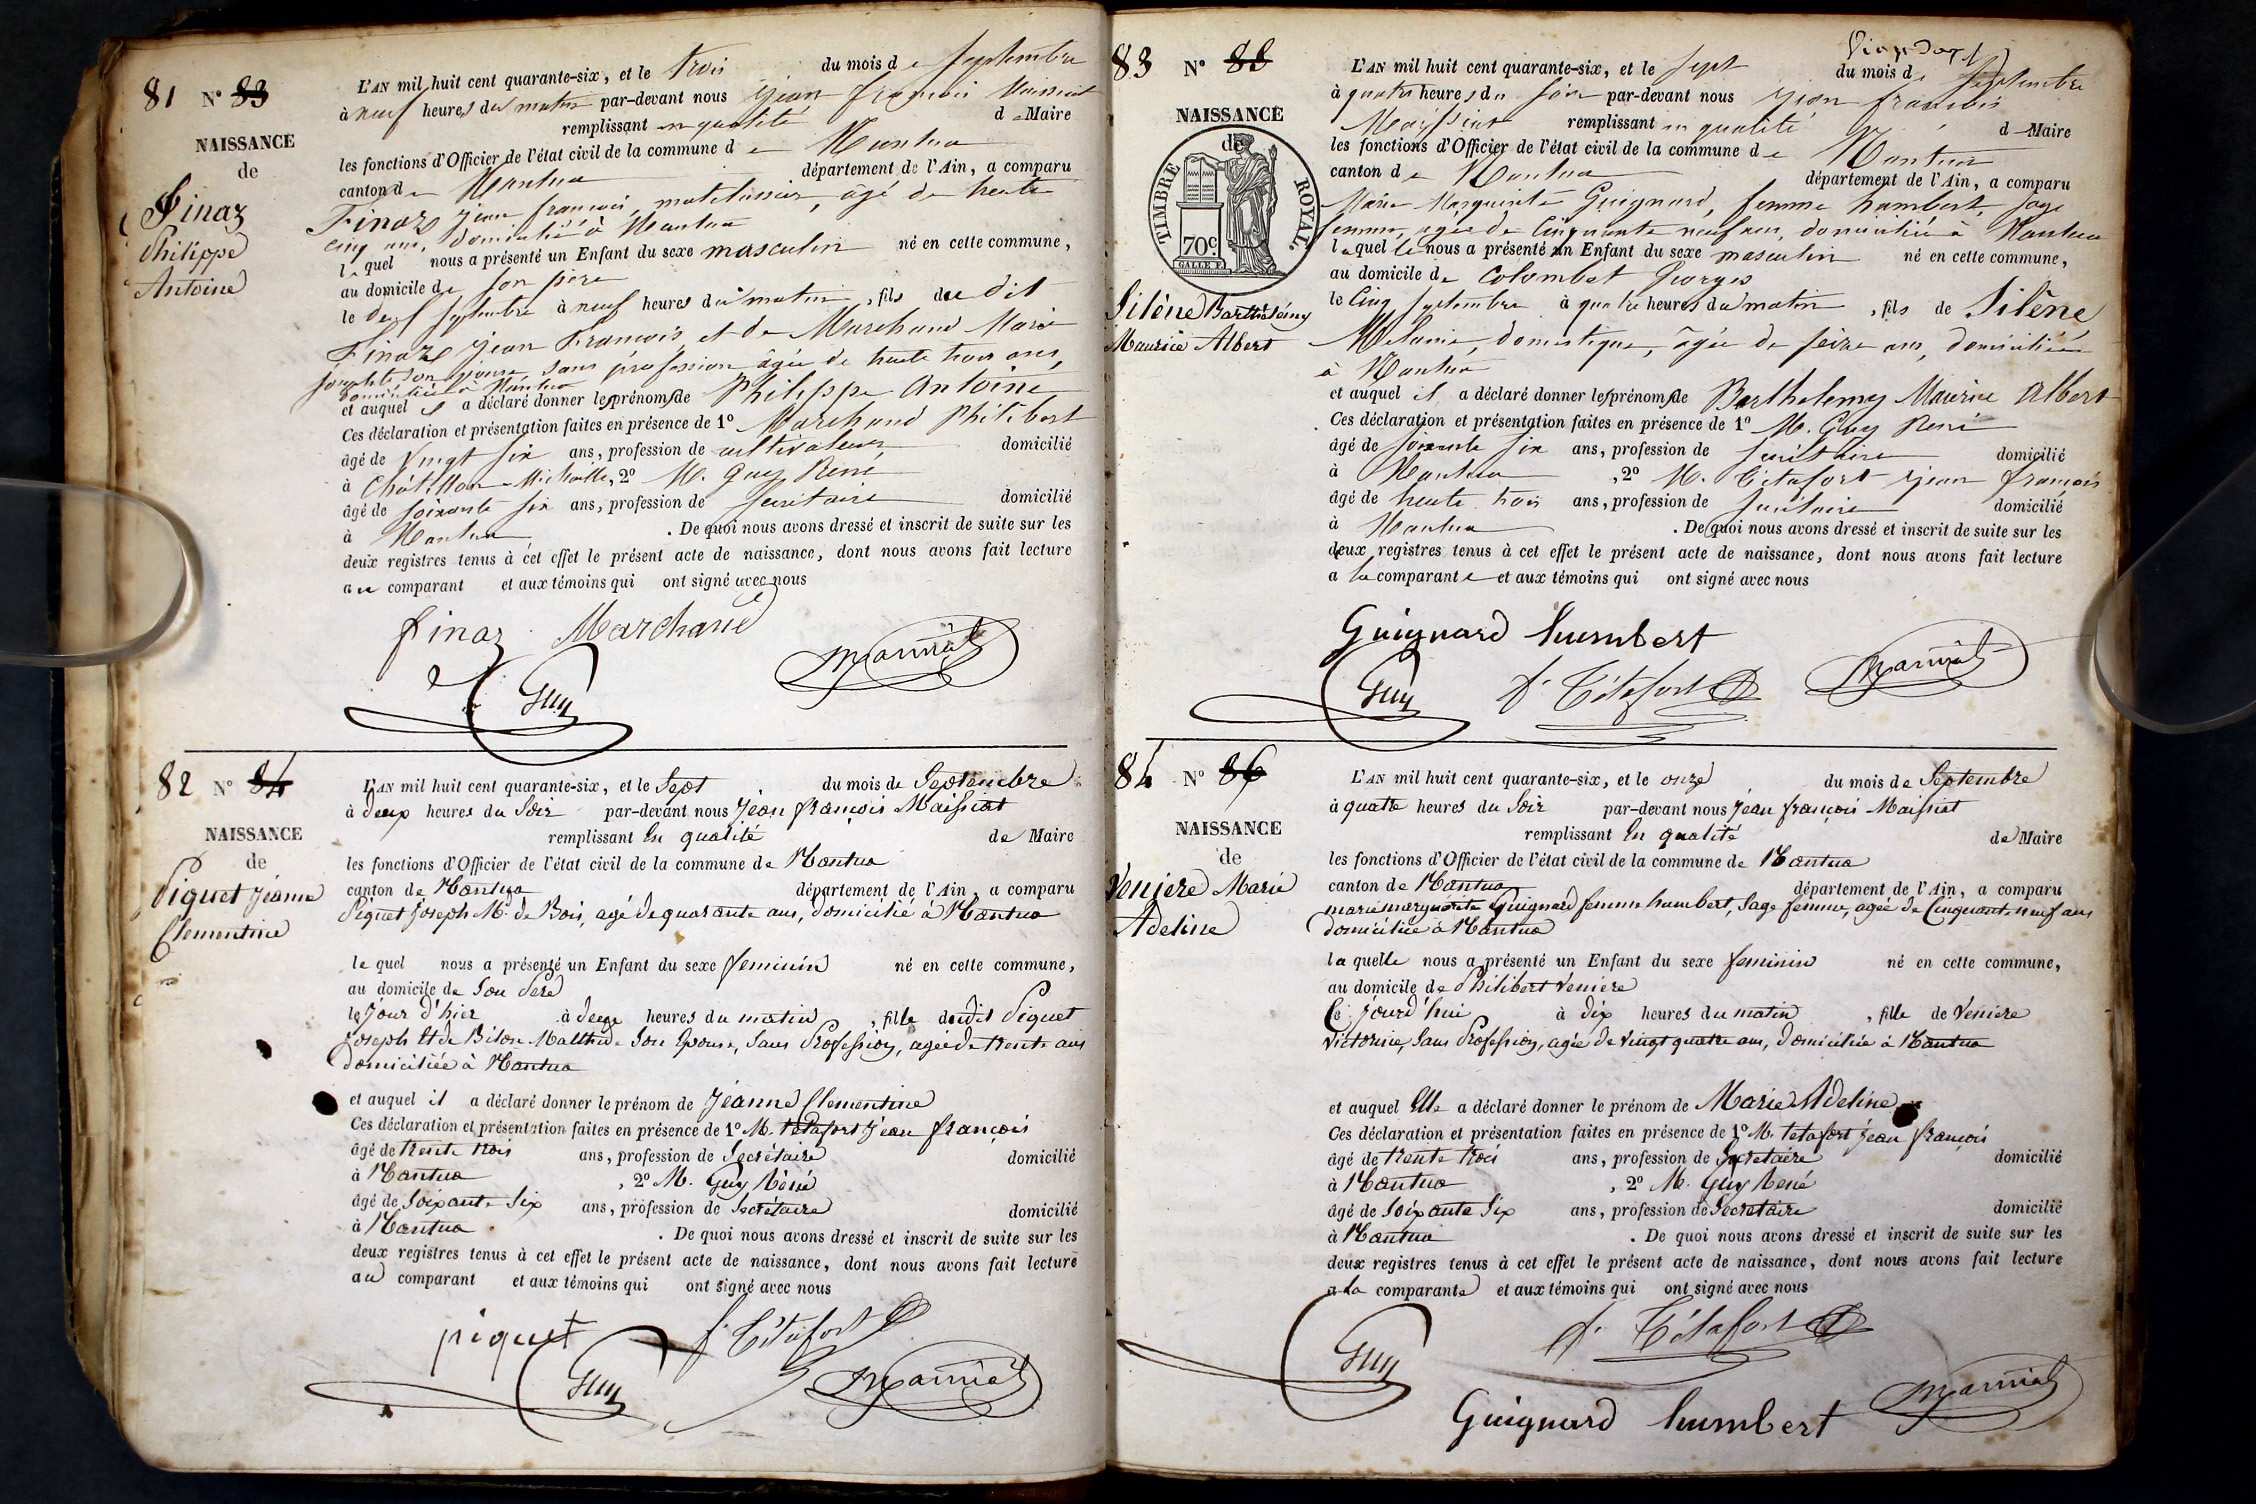 81 N° 83
NAISSANCE
de
Finaz
Philippe
Antoine
L'AN mil huit cent quarante-six, et le trois du mois de Septembre
à neuf heures du matin par-devant nous Jean François Maissiat
remplissant en qualité de Maire
les fonctions d'Officier de l'état civil de la commune de Nantua
canton de Nantua département de l'Ain, a comparu
Finaz Jean François, matelassier, âgé de trente
cinq ans, domicilié à Nantua
lequel nous a présenté un Enfant du sexe masculin né en cette commune,
au domicile de son père
le deux Septembre à neuf heures du matin, fils du dit
Finaz Jean François et de Marchand Marie
Josephte son épouse, sans profession âgée de trente trois ans,
domiciliée à Nantua
et auquel il a déclaré donner les prénoms de Philippe Antoine
Ces déclaration et présentation faites en présence de 1° Marchand Philibert
âgé de vingt six ans, profession de cultivateur, domicilié
à Châtillon-Michaille, 2° M. Guy René
âgé de soixante six ans, profession de secrétaire domicilié
à Nantua. De quoi nous avons dressé et inscrit de suite sur les
deux registres tenus à cet effet le présent acte de naissance, dont nous avons fait lecture
au comparant et aux témoins qui ont signé avec nous
finaz Marchand
Guy Maissiat
82 N° 84
NAISSANCE
de
Piquet Jeanne
Clementine
L'AN mil huit cent quarante-six, et le Sept du mois de Septembre
à deux heures du Soir par-devant nous Jean françois Maissiat
remplissant En qualité de Maire
les fonctions d'Officier de l'état civil de la commune de Nantua
canton de Nantua département de l'Ain, a comparu
Piquet Joseph Md. de Bois, agé de quarante ans, domicilié à Nantua
lequel nous a présenté un Enfant du sexe feminin né en cette commune,
au domicile de Son Père
le Jour d'hier à deux heures du matin, fille dudit Piquet
Joseph Et de Biton Malthide Son Epouse, Sans Profession, agée de trente ans
domiciliée à Nantua
et auquel il a déclaré donner le prénom de Jeanne Clementine
Ces déclaration et présentation faites en présence de 1° M. tetafort Jean françois
âgé de trente trois ans, profession de Secrétaire domicilié
à Nantua, 2° M. Guy Réné
âgé de Soixante Six ans, profession de Secrétaire domicilié
à Nantua. De quoi nous avons dressé et inscrit de suite sur les
deux registres tenus à cet effet le présent acte de naissance, dont nous avons fait lecture
au comparant et aux témoins qui ont signé avec nous
piquet f. Tétafort
Guy Maissiat
83 N° 88
NAISSANCE
de
TIMBRE ROYAL.
70c.
GALLE F.
Silène Barthélémy
Maurice Albert
L'AN mil huit cent quarante-six, et le sept du mois de Septembre
à quatre heures du soir par-devant nous Jean françois
Maissiat remplissant en qualité de Maire
les fonctions d'Officier de l'état civil de la commune de Nantua
canton de Nantua département de l'Ain, a comparu
Marie Marguerite Guignard, femme humbert, sage
femme, agée de Cinquante neuf ans, domiciliée à Nantua
laquelle nous a présenté un Enfant du sexe masculin né en cette commune,
au domicile de Colombet Georges
le Cinq Septembre à quatre heures du matin, fils de Silène
Melanie, domestique, âgée de seize ans, domiciliée
à Nantua
et auquel il a déclaré donner les prénoms de Barthelemy Maurice Albert
Ces déclaration et présentation faites en présence de 1° M. Guy René
âgé de soixante six ans, profession de secrétaire domicilié
à Nantua, 2° M. Tétafort Jean françois
âgé de trente trois ans, profession de secrétaire domicilié
à Nantua. De quoi nous avons dressé et inscrit de suite sur les
deux registres tenus à cet effet le présent acte de naissance, dont nous avons fait lecture
a la comparante et aux témoins qui ont signé avec nous
Guignard humbert
Guy f. Tétafort Maissiat
84 N° 86
NAISSANCE
de
Veniere Marie
Adeline
L'AN mil huit cent quarante-six, et le onze du mois de Septembre
à quatre heures du Soir par-devant nous Jean françois Maissiat
remplissant En qualité de Maire
les fonctions d'Officier de l'état civil de la commune de Nantua
canton de Nantua département de l'Ain, a comparu
marie marguerite Guignard femme humbert, Sage femme, agée de Cinquante neuf ans
domiciliée à Nantua
laquelle nous a présenté un Enfant du sexe feminin né en cette commune,
au domicile de Philibert Veniere
Ce jourd'hui à dix heures du matin, fille de Veniere
Victorine, Sans Profession, agée de vingt quatre ans, domiciliée à Nantua
et auquel Elle a déclaré donner le prénom de Marie Adeline
Ces déclaration et présentation faites en présence de 1° M. tetafort jean françois
âgé de trente trois ans, profession de Secretaire domicilié
à Nantua, 2° M. Guy René
âgé de Soixante Six ans, profession de Secretaire domicilié
à Nantua. De quoi nous avons dressé et inscrit de suite sur les
deux registres tenus à cet effet le présent acte de naissance, dont nous avons fait lecture
a la comparante et aux témoins qui ont signé avec nous
Guy f. Tétafort
Guignard humbert Maissiat